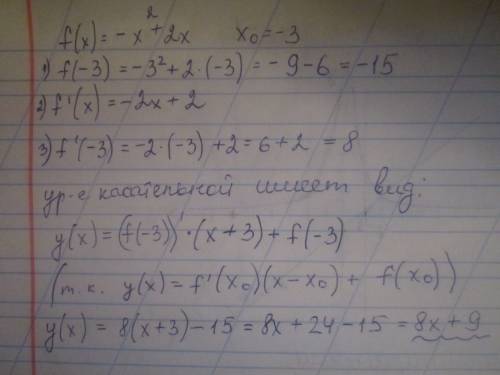 f(x) = -x² + 2x    x₀ = -3
1) f(-3) = -3² + 2·(-3) = -9-6 = -15
2) f'(x) = -2x + 2
3) f'(-3) = -2·(-3) + 2 = 6 + 2 = 8
ур-е касательной имеет вид:
y(x) = (f(-3))'·(x+3) + f(-3)
(т.к. y(x) = f'(x₀)(x-x₀) + f(x₀))
y(x) = 8(x+3)-15 = 8x+24-15 = 8x+9